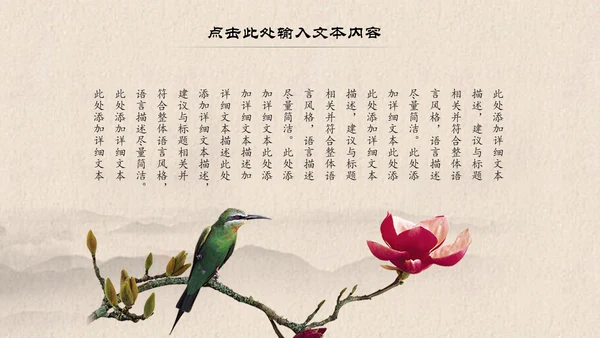 点击此处输入文本内容
此处添加详细文本
描述，建议与标题
相关并符合整体语
言风格，语言描述
尽量简洁。此处添
加详细文本此处添
此处添加详细文本
描述，建议与标题
相关并符合整体语
言风格，语言描述
尽量简洁。此处添
加详细文本此处添
加详细文本描述加
详细文本描述此处
添加详细文本描述，
建议与标题相关并
符合整体语言风格，
语言描述尽量简洁。
此处添加详细文本
此处添加详细文本